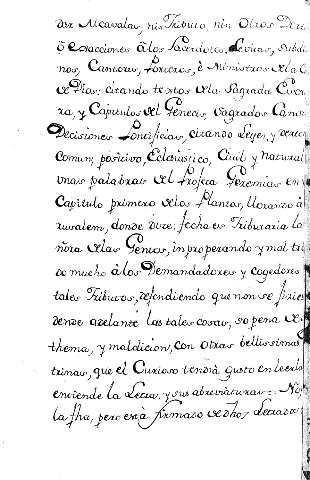 dar Alcavalas, nin Tributo, nin Otros Dere
ô Exacciones â los Sacerdotes, Levitas, Subdia
nos, Cantores, Porteros, ê Ministros de la C
de Dios; citando textos de la Sagrada Escri
ra, y Capitulos del Genesis, Sagrados Canon
Decisiones Pontificias, citando Leyes, y derech
comun, positivo, Eclesiastico, Civil y Natural
unas palabras del Profeta Geremias en
Capitulo primero de los Plantos, llorando â
rusalem, donde dice: fecha es Tributaria la
ñora de las Gentes, improperando y mal tra
do mucho â los Demandadores y cogedores
tales Tributos, defendiendo que non se ficie
dende adelante las tales cosas, so pena de
thema, y maldicion, con otras bellissimas
trinas, que el Curioso tendrâ gusto en leerla
entiende la Letra y sus abreviaturas:- No
la fha, pero està firmado de dho Letrado